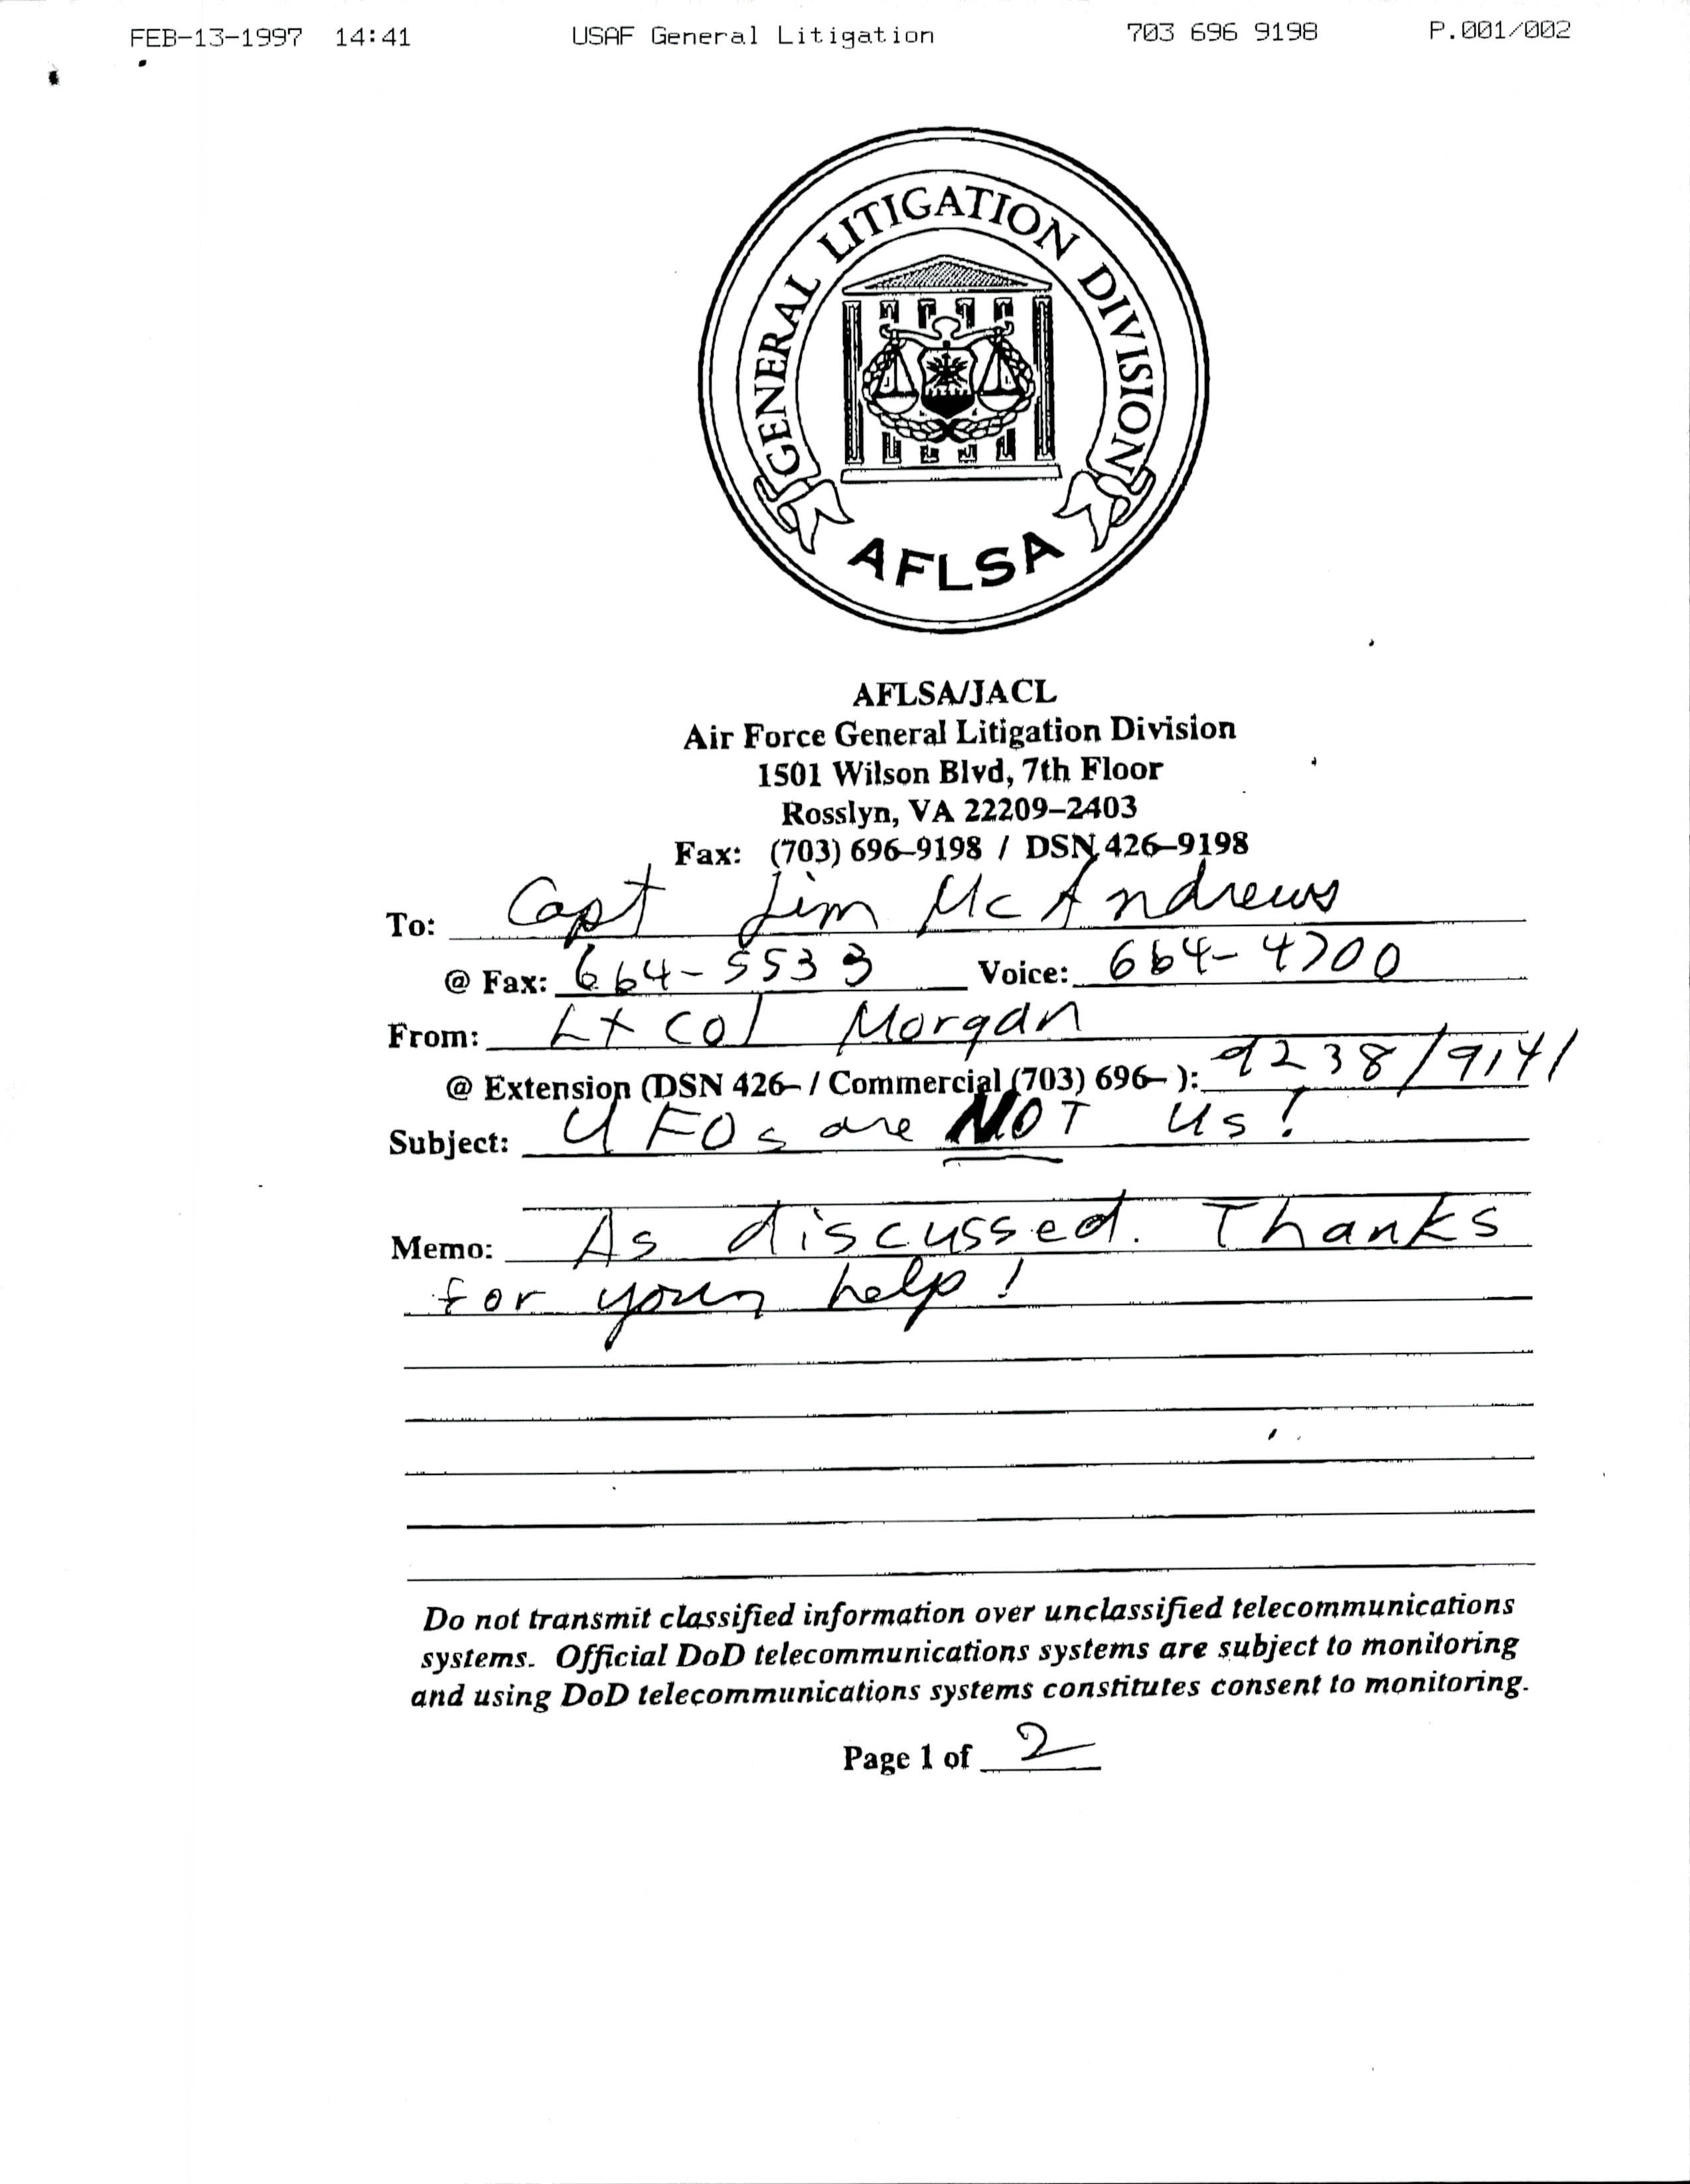 FEB-13-1997 14:41 USAF General Litigation 703 696 9198 P.001/002
GENERAL LITIGATION DIVISION
AFLSA
AFLSA/JACL
Air Force General Litigation Division
1501 Wilson Blvd, 7th Floor
Rosslyn, VA 22209-2403
Fax: (703) 696-9198 / DSN 426-9198
To: Capt Jim McAndrews
@ Fax: 664-5533 Voice: 664-4700
From: Lt Col Morgan
@ Extension (DSN 426- / Commercial (703) 696- ): 9238/9141
Subject: UFOs are NOT us!
Memo: As discussed. Thanks
for your help!
Do not transmit classified information over unclassified telecommunications
systems. Official DoD telecommunications systems are subject to monitoring
and using DoD telecommunications systems constitutes consent to monitoring.
Page 1 of 2